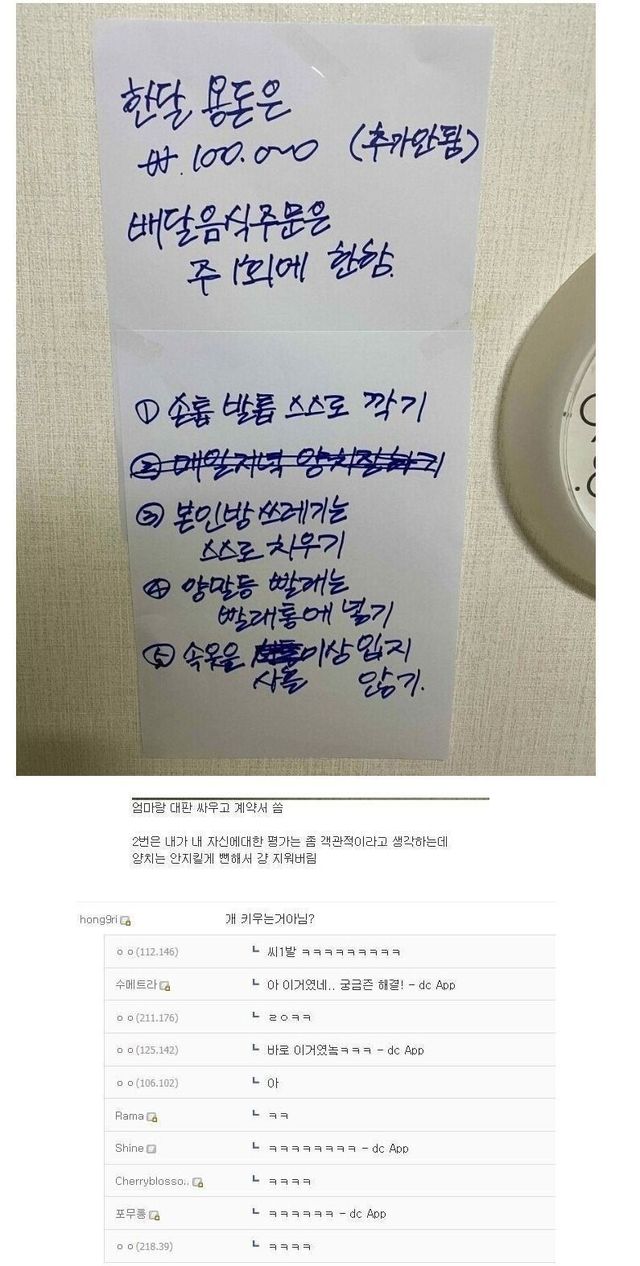 한달 용돈은
₩.100.000 (추가안됨)
배달음식주문은
주 1회에 한함.
① 손톱 발톱 스스로 깍기
② 매일저녁 양치질하기
③ 본인방 쓰레기는
스스로 치우기
④ 양말등 빨래는
빨래통에 넣기
⑤ 속옷을 이상 입지
사흘 않기.
엄마랑 대판 싸우고 계약서 씀
2번은 내가 내 자신에대한 평가는 좀 객관적이라고 생각하는데
양치는 안지킬게 뻔해서 걍 지워버림
hong9ri 개 키우는거아님?
ㅇㅇ(112.146) ┗ 씨1발 ㅋㅋㅋㅋㅋㅋㅋㅋㅋ
수메트라 ┗ 아 이거였네.. 궁금즌 해결! - dc App
ㅇㅇ(211.176) ┗ ㄹㅇㅋㅋ
ㅇㅇ(125.142) ┗ 바로 이거였놐ㅋㅋㅋ - dc App
ㅇㅇ(106.102) ┗ 아
Rama ┗ ㅋㅋ
Shine ┗ ㅋㅋㅋㅋㅋㅋㅋㅋ - dc App
Cherryblosso.. ┗ ㅋㅋㅋㅋ
포무룽 ┗ ㅋㅋㅋㅋㅋㅋ - dc App
ㅇㅇ(218.39) ┗ ㅋㅋㅋㅋ